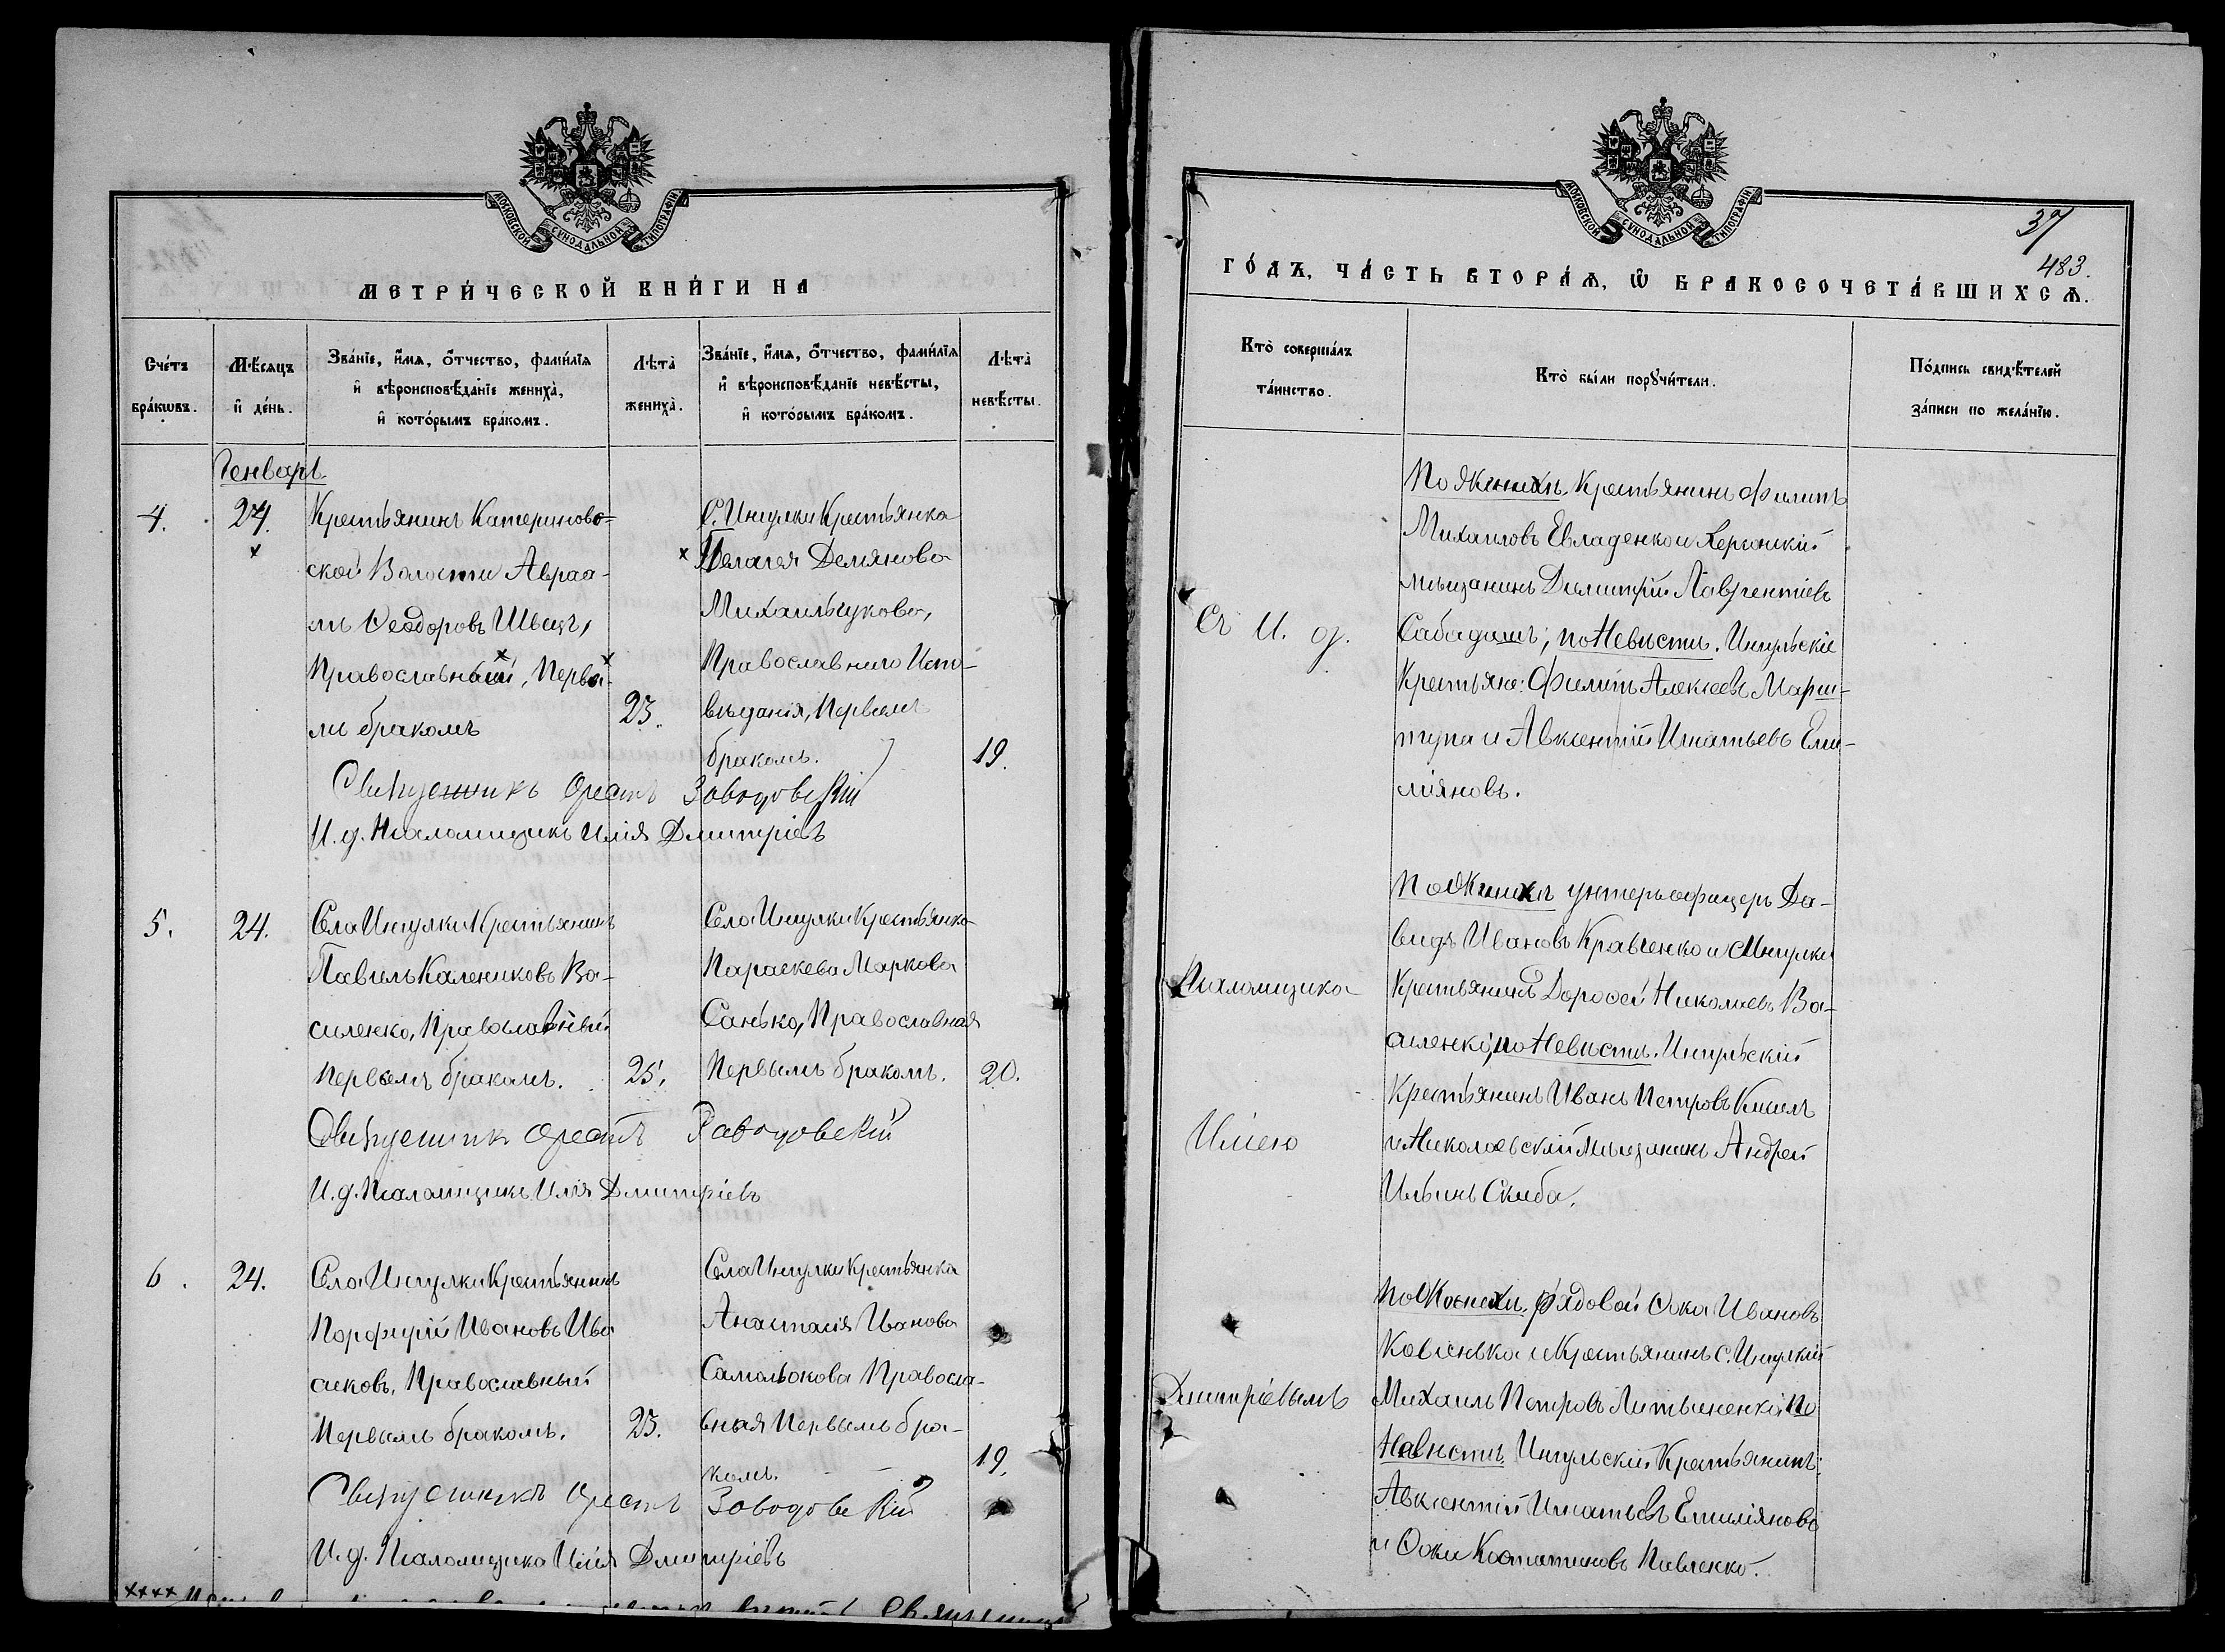 МОСКОВСКОЙ СѴНОДАЛЬНОЙ ТИПОГРАФІИ
МЕТРИ́ЧЕСКОЙ КНИ́ГИ НА
Сче́тъ
бра́кѡвъ.
Мѣ́сяцъ
и҆ де́нь.
Зва́нїе, и҆́мѧ, ѻ҆́тчество, фами́лїѧ
и҆ вѣроисповѣ́данїе жениха̀,
и҆ кото́рымъ бра́комъ.
Лѣта̀
жениха̀.
Зва́нїе, и҆́мѧ, ѻ҆́тчество, фами́лїѧ
и҆ вѣроисповѣ́данїе невѣ́сты,
и҆ кото́рымъ бра́комъ.
Лѣта̀
невѣ́сты.
Генварь
4.
24.
х
Крестьянинъ Катериново=
ской Волости Авраа-
мъ Ѳеодоровъ Швецъ,
Православный, Первы-
мъ бракомъ
23.
С. Ингулки Крестьянка
х Пелагея Демянова
Михальчукова,
Православнаго Испо-
вѣданія, Первымъ
бракомъ.
19.
Священникъ Орестъ Заводовскій
И. д. Псаломщика Илія Дмитріевъ
5.
24.
Села Ингулки Крестьянинъ
Павилъ Калениковъ Ва-
силенко, Православный
Первымъ бракомъ.
25.
Села Ингулки Крестьянка
Параскева Маркова
Санько, Православная
Первымъ бракомъ.
20.
Священникъ Орестъ Заводовскій
И. д. Псаломщика Илія Дмитріевъ
6.
24.
Села Ингулки Крестьянинъ
Порфирій Ивановъ Ива
сиковъ, Православный
Первымъ бракомъ.
23.
Села Ингулки Крестьянка
Анастасія Иванова
Правосла-
вная Первымъ бра-
комъ.
19.
Священникъ Орестъ Заводовскій
И. д. Псаломщика Илія Дмитріевъ
хххх
МОСКОВСКОЙ СѴНОДАЛЬНОЙ ТИПОГРАФІИ
37
483.
ГО́ДЪ, ЧА́СТЬ ВТОРА́Ѧ, Ѡ҆ БРАКОСОЧЕТА́ВШИХСѦ.
Кто̀ соверша́лъ
та́инство.
Кто̀ бы́ли порꙋчи́тели.
По́дпись свидѣ́телей
за́писи по жела́нїю.
Съ И. д.
Псаломщика
Иліею
Дмитріевымъ
По Женихѣ. Крестьянинъ Филипъ
Михаиловъ Евладенко и Херсонскій
мѣщанинъ Димитрій Лаврентіевъ
Сабадашъ; по Невѣстѣ. Ингульскіе
Крестьяне: Филипъ Алексѣевъ
и Авксентій Игнатьевъ Еми-
ліяновъ.
По Женихѣ унтеръ офицеръ Да-
видъ Ивановъ Кравченко и с Ингулки
Крестьянинъ Дороѳей Николаевъ Ва-
силенко, по Невѣстѣ. Ингульскій
Крестьянинъ Иванъ Петровъ
и Николаевскій Мѣщанинъ Андрей
Ильинъ Скиба.
По Женихѣ. Рядовой Ѳока Ивановъ
и Крестьянинъ с. Ингулки
Михаилъ Петровъ Литвиненко, По
Невѣстѣ Ингульскій Крестьянинъ:
Авксентій Игнатьевъ Емиліяновъ
и Ѳока Костатиновъ Павленко.